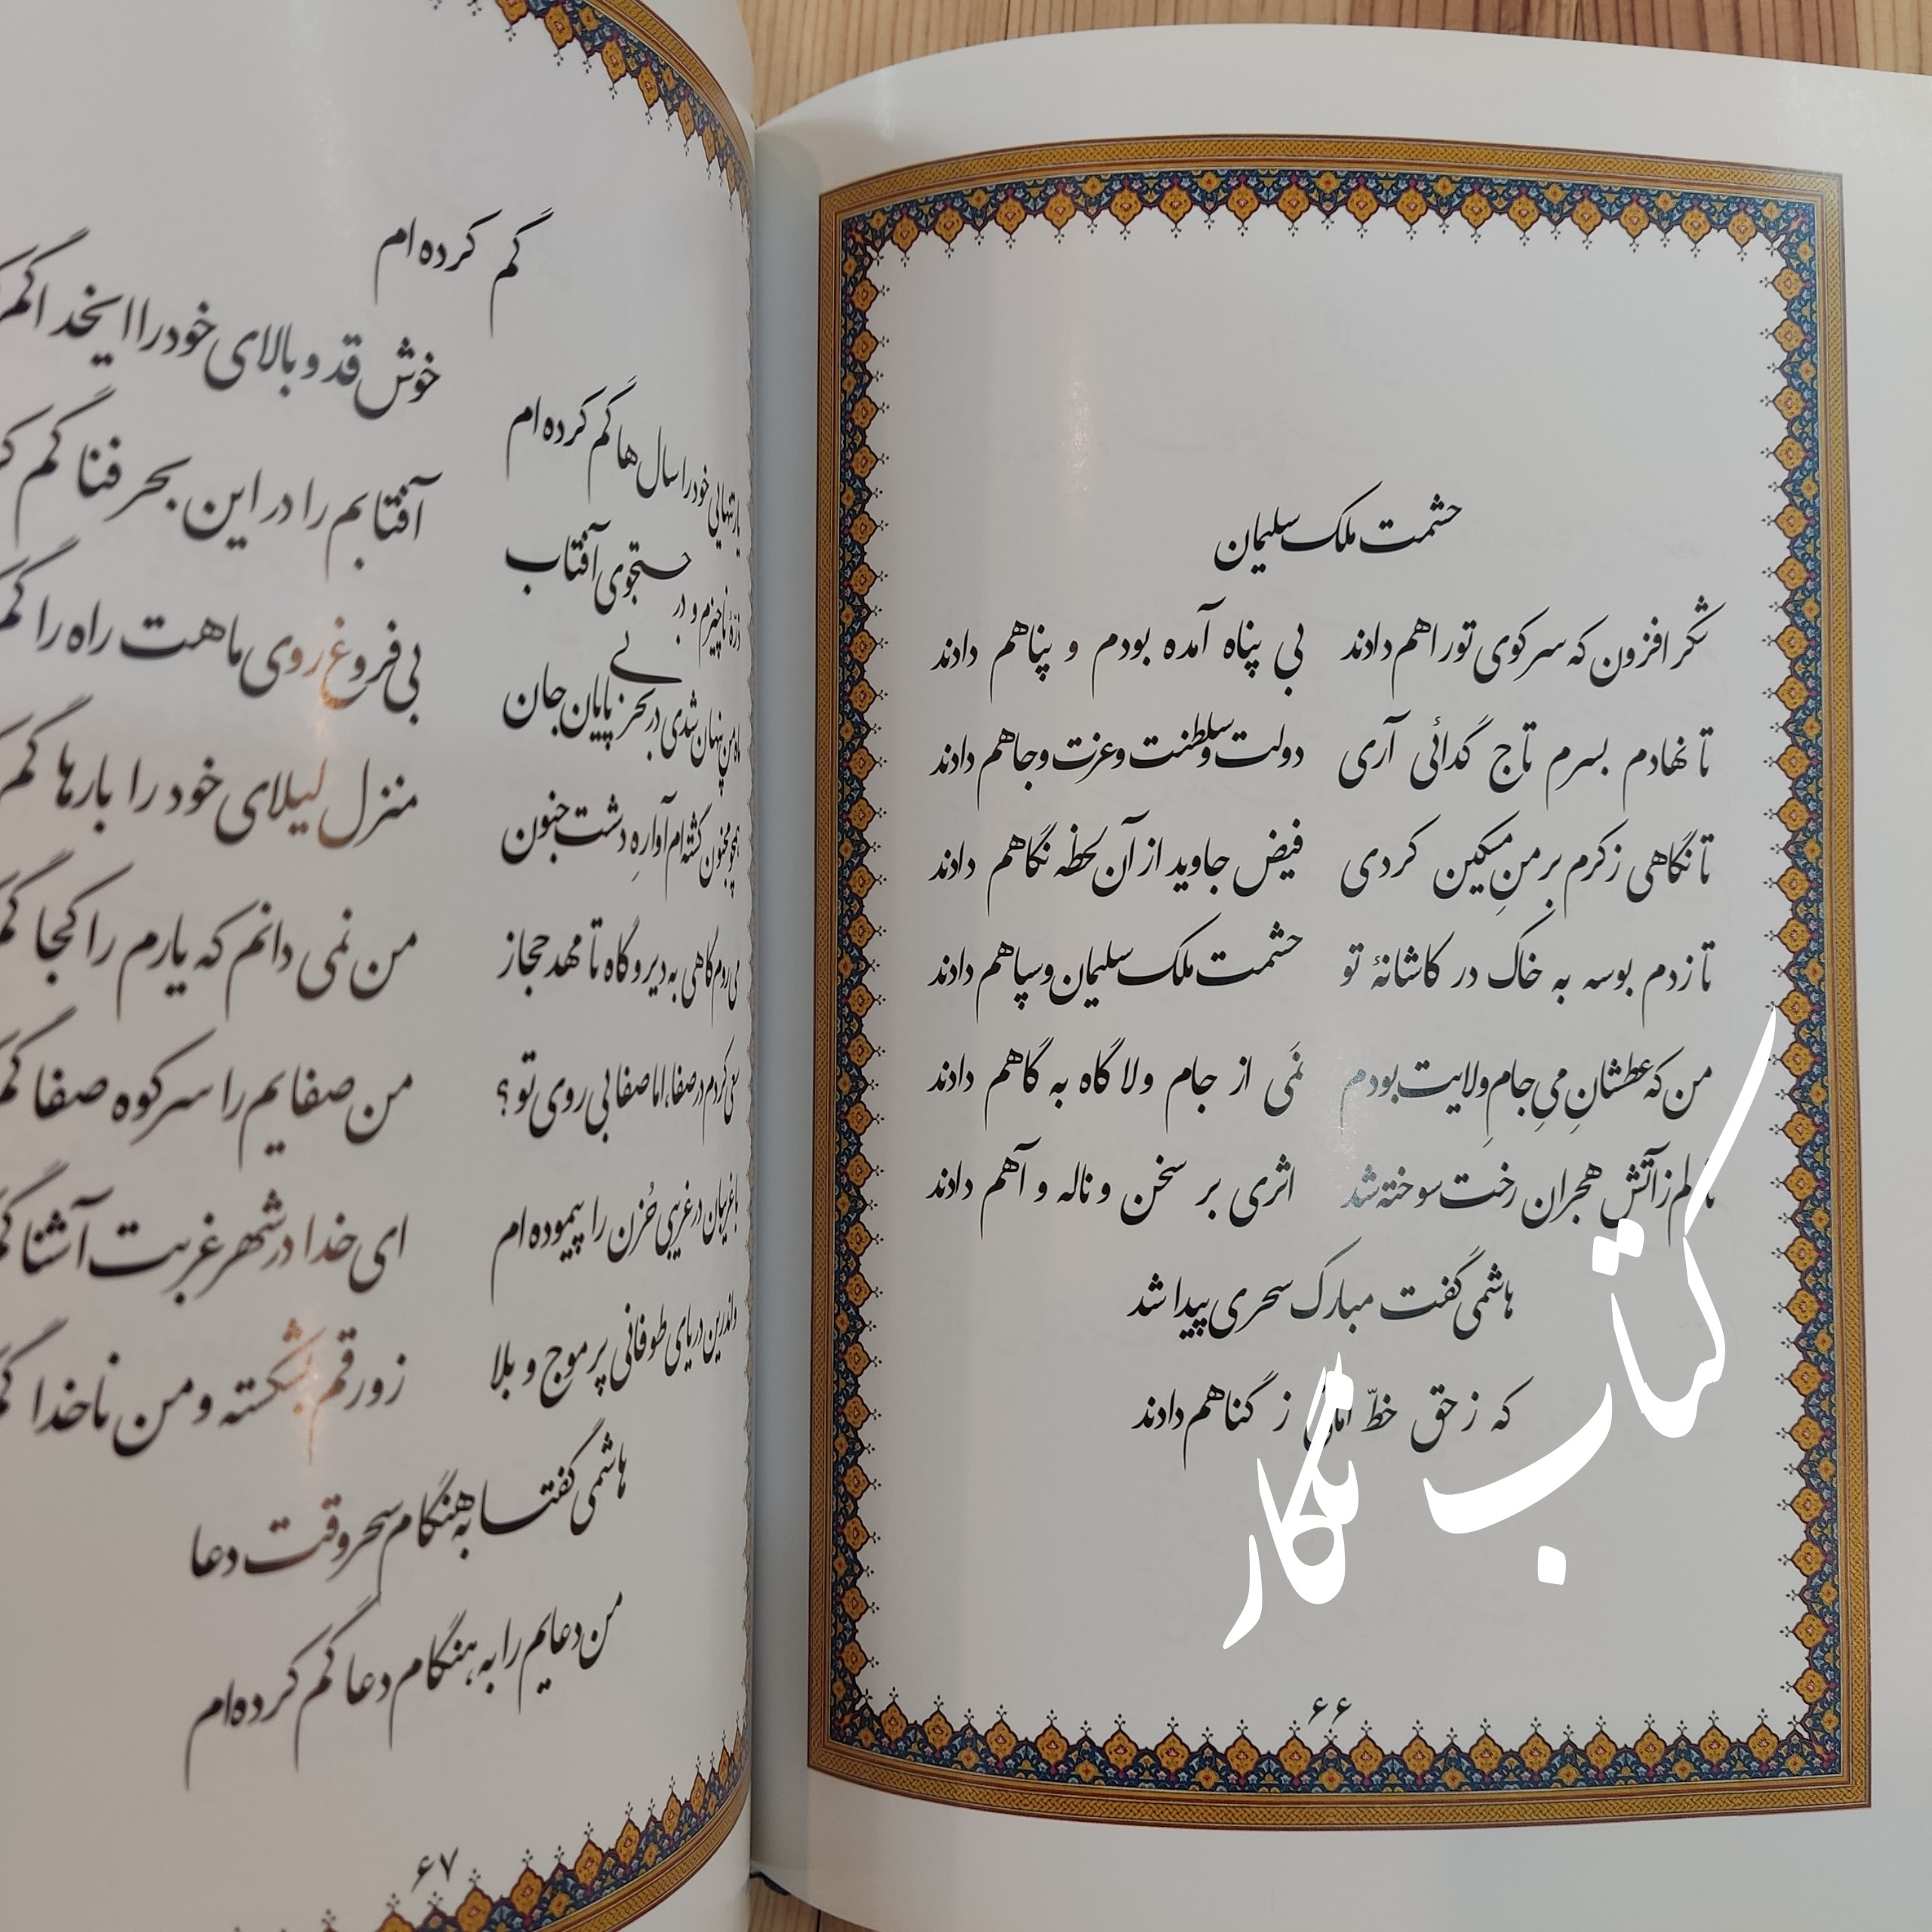 حشمت ملک سلیمان
شکر افزون که سر کوی تو راهم دادند بی پناه آمده بودم و پناهم دادند
تا نهادم بسرم تاج گدائی آری دولت و سلطنت و عزت و جاهم دادند
تا نگاهی ز کرم بر منِ مسکین کردی فیض جاوید از آن لحظه نگاهم دادند
تا زدم بوسه به خاک در کاشانهٔ تو حشمت ملک سلیمان و سپاهم دادند
من که عطشانِ میِ جامِ ولایت بودم نَمی از جام ولا گاه به گاهم دادند
ز آتش هجران رخت سوخته شد اثری بر سخن و ناله و آهم دادند
هاشمی گفت مبارک سحری پیدا شد
که ز حق خطّ امانی ز گناهم دادند
۶۶
کتاب نگار
گم کرده ام
یار تنهایی خود را سال ها گم کرده ام خوش قد و بالای خود را ایخدا گم
ذرهٔ ناچیزم و در جستجوی آفتاب آفتابم را در این بحر فنا گم
ماه من پنهان شدی در بحر بی پایان جان بی فروغ روی ماهت راه را گم
همچو مجنون گشته ام آواره دشت جنون منزل لیلای خود را بارها گم
می روم گاهی به دیر و گاه تا مهد حجاز من نمی دانم که یارم را کجا گم
سعی کردم در صفا، اما صفا بی روی تو؟ من صفایم را سر کوه صفا گم
با غریبان در غریبی حُزن را پیموده ام ای خدا در شهر غربت آشنا گم
واندرین دریای طوفانی پر موج و بلا زورقم بشکسته و من ناخدا گم
هاشمی گفتا به هنگام سحر وقت دعا
من دعایم را به هنگام دعا گم کرده ام
۶۷